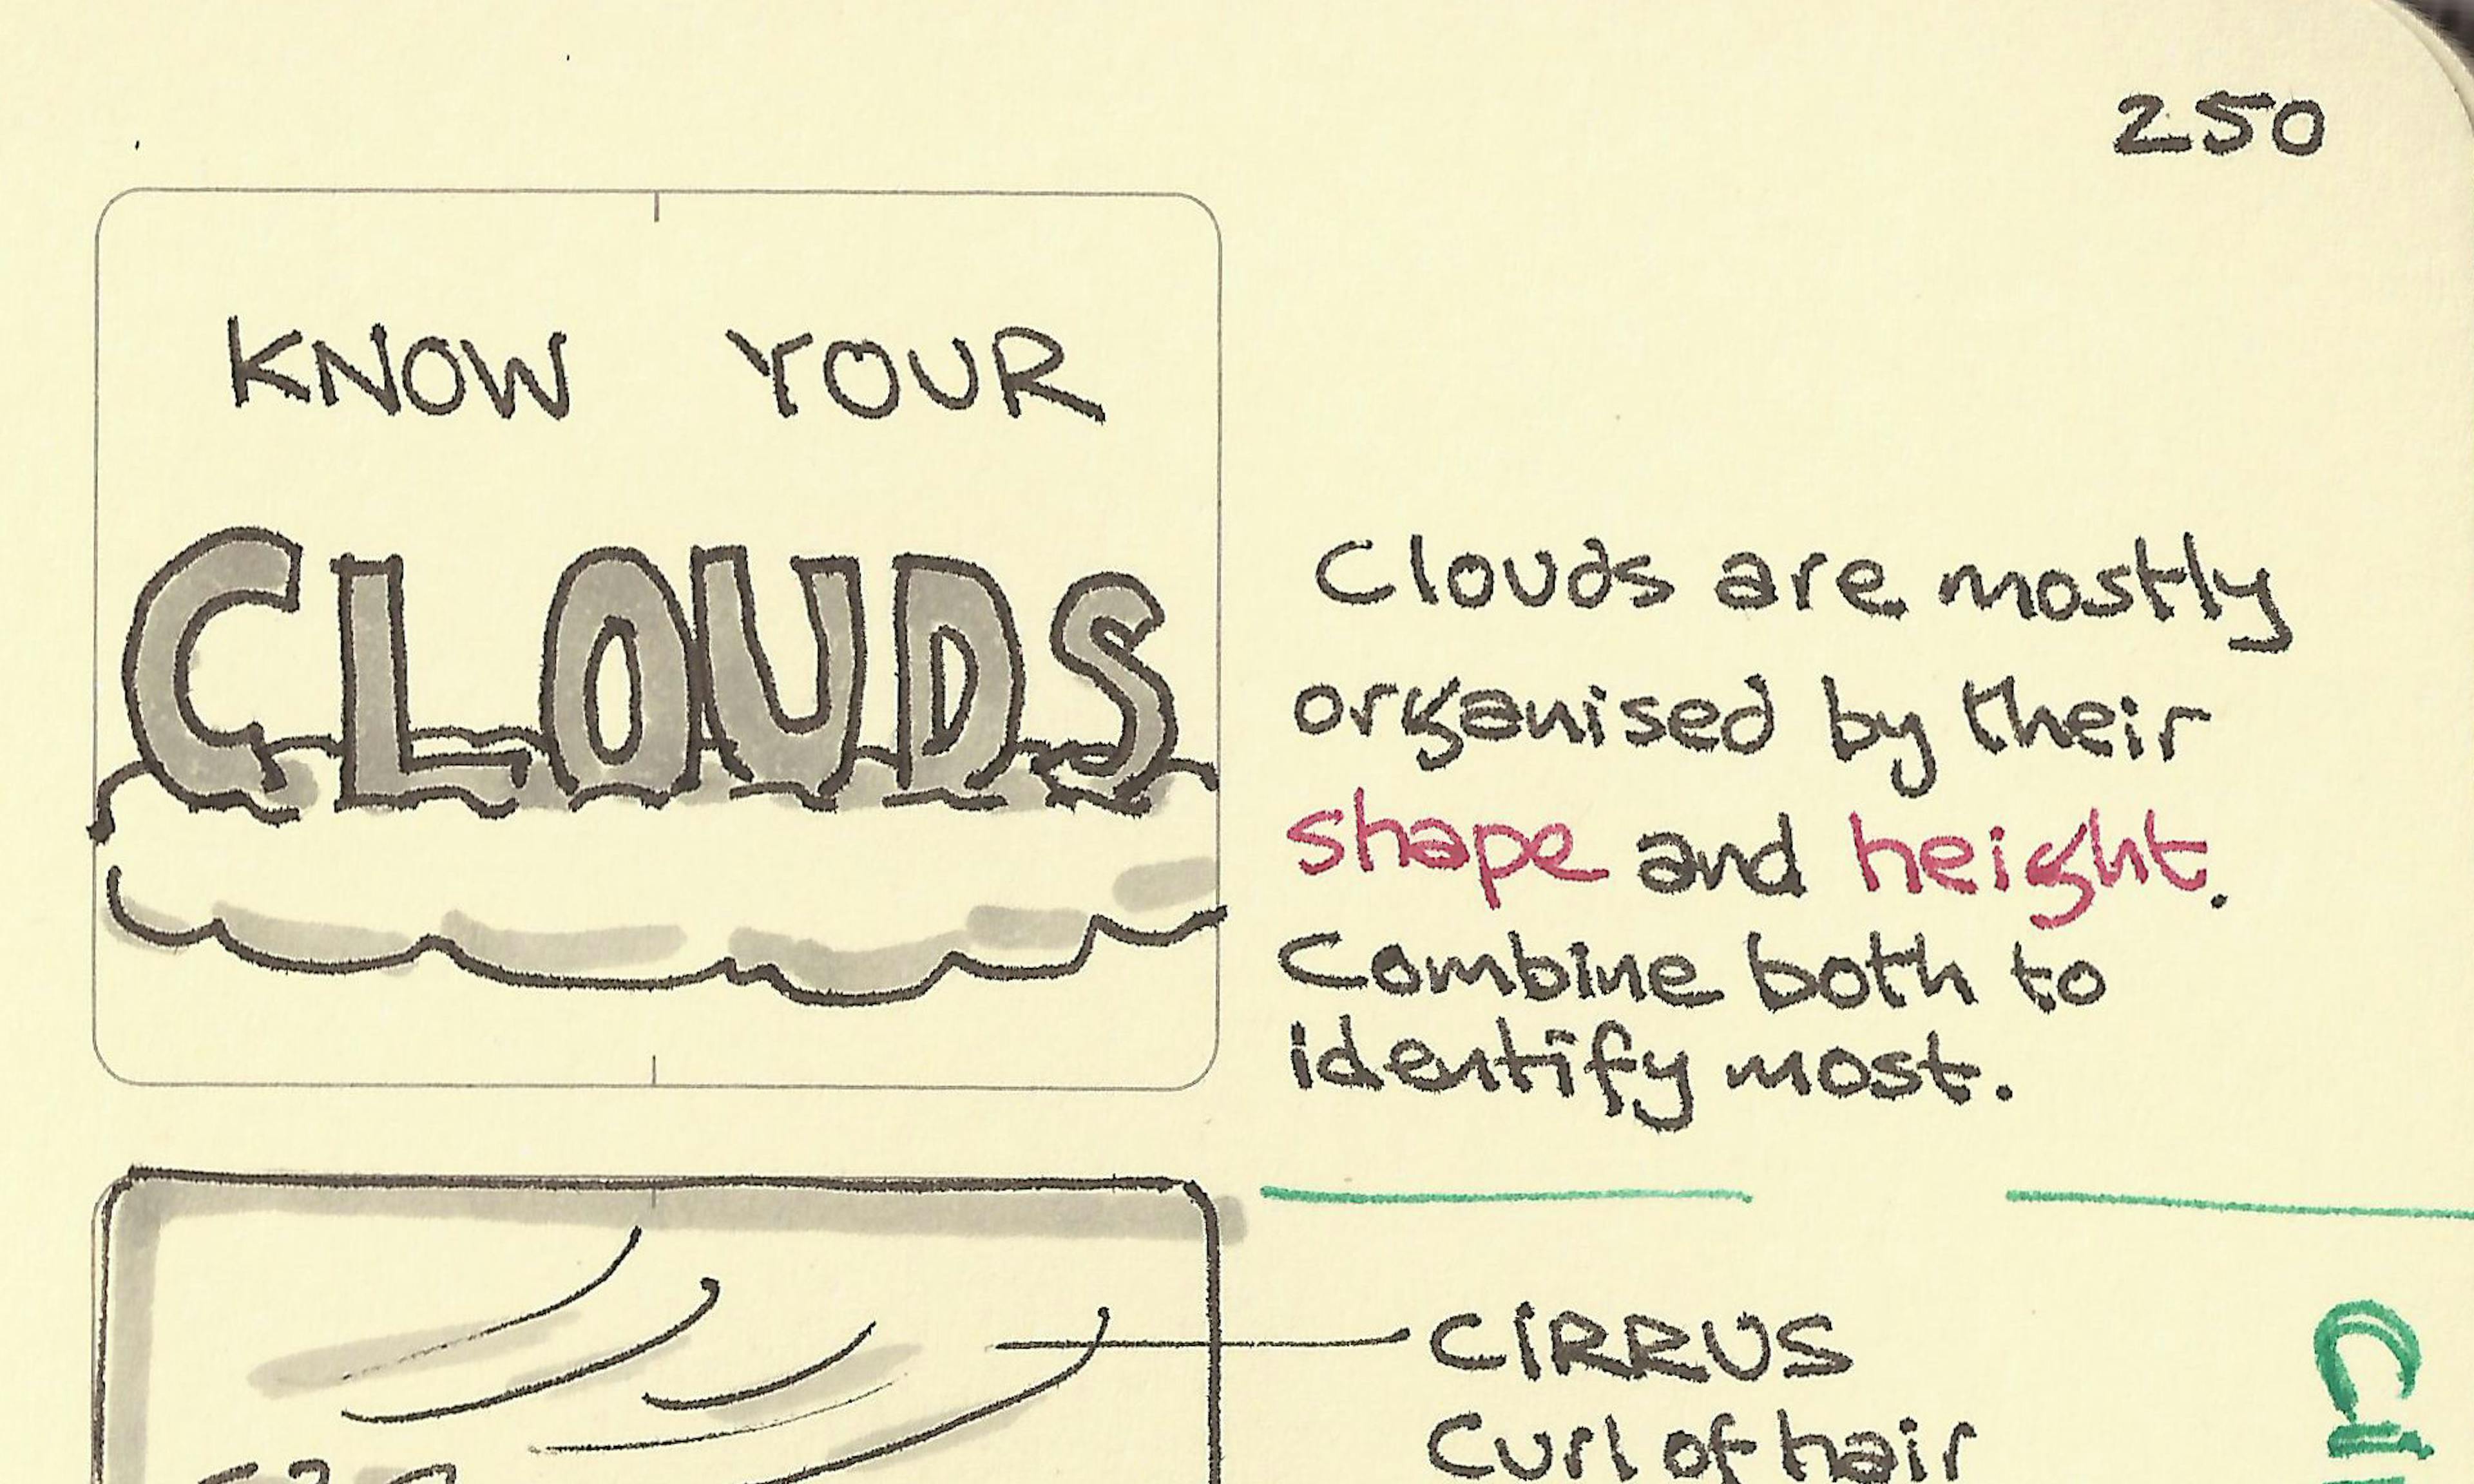 250
KNOW YOUR
CLOUDS
Clouds are mostly
organised by their
shape and height.
Combine both to
identify most.
CIRRUS
Curl of hair